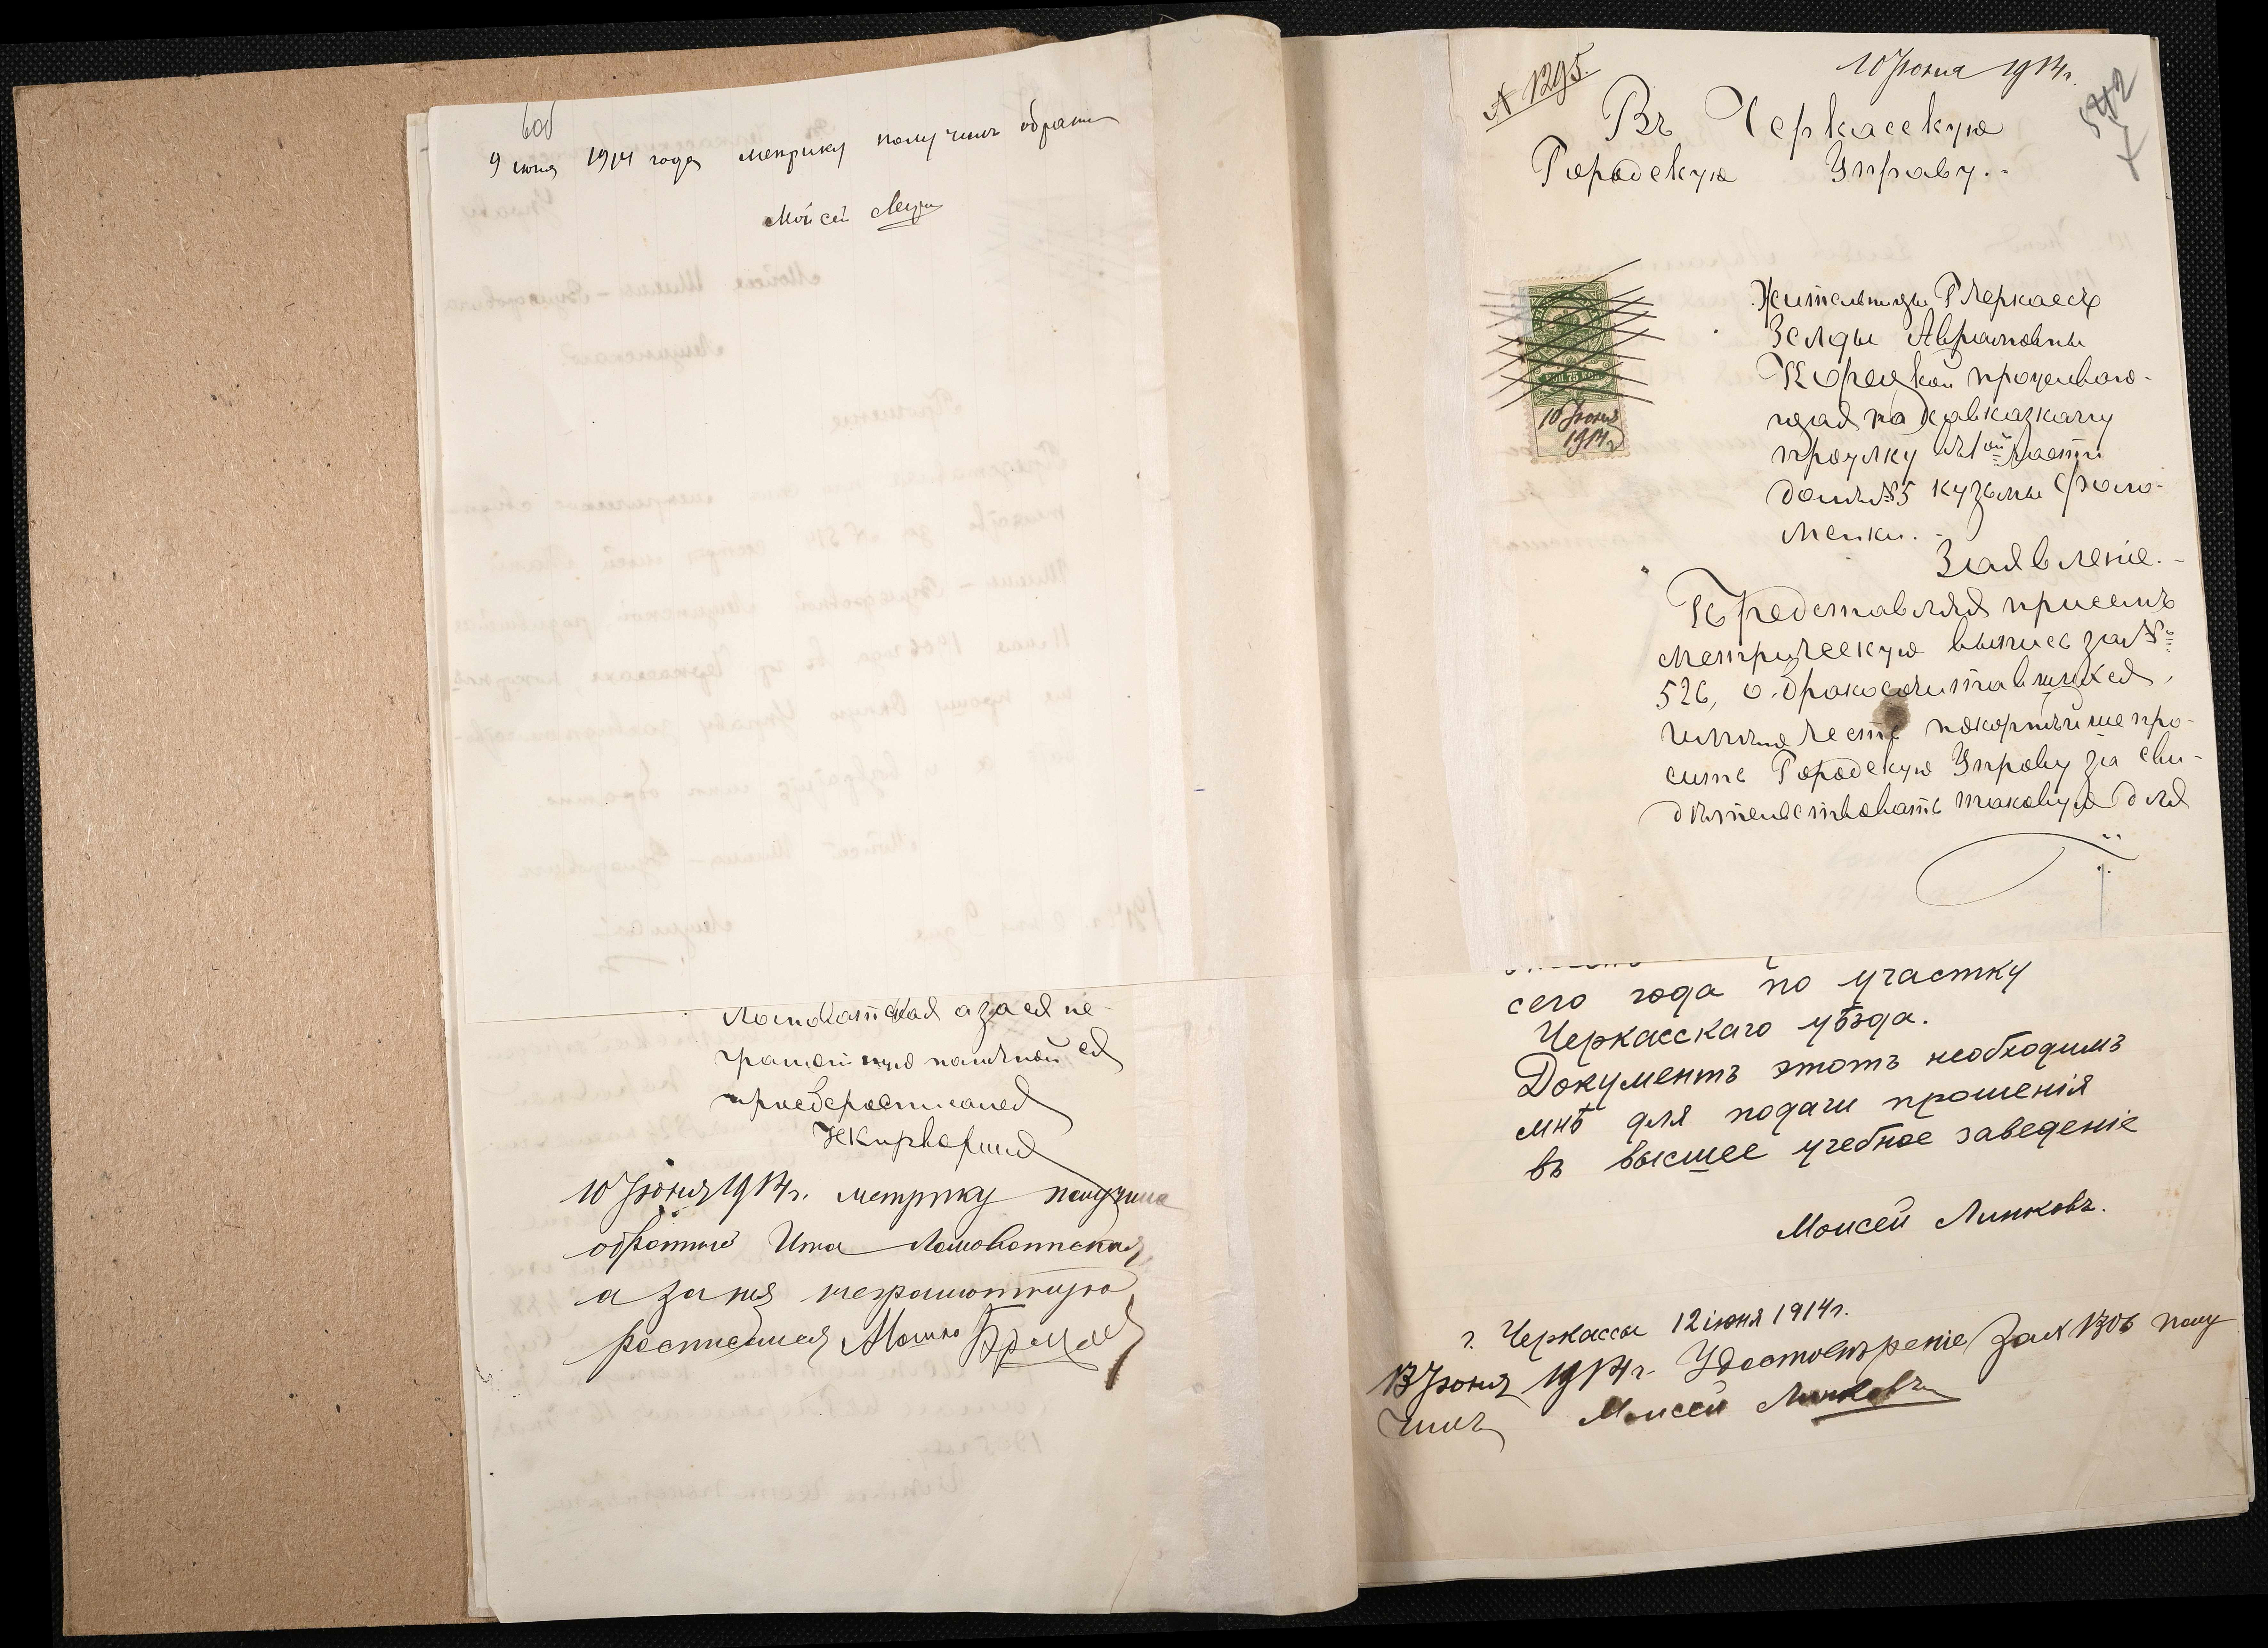 9 июня 1914 года метрику получилъ обратно
Мойсей
Ломоватская а за ея не-
грамотную по личной ея
прозбе росписался
10 Іюня 1914 г. метрику получила
обратно Ита Ломоватская,
а за нея неграмотную
росписался Мошко
№ 1295.
10 Іюня 1914 г.
542
Въ Черкасскую
Городскую Управу.
Жительницы Г Черкассъ
Зелды Абрамовны
Корецкой проживаю-
щая на Кавказкому
проулку въ 1ой части
домъ №5 Кузьмы Фоло-
менки.
75 коп.
10 Іюня
1914 г
Заявленіе.
Представляя при семъ
метрическую выпись за №
526, о бракосочитавшихся,
имѣю честь покорнѣйше про-
сить Городскую Управу за сви-
дѣтельствовать таковую для
сего года по участку
Черкасскаго уѣзда.
Документъ этотъ необходимъ
мнѣ для подачи прошенія
въ высшее учебное заведеніе
Моисей Линковъ.
г. Черкассы 12 іюня 1914 г.
13 Іюня 1914 г. Удостовѣреніе за № 1306 полу
чилъ Моисей Линковъ